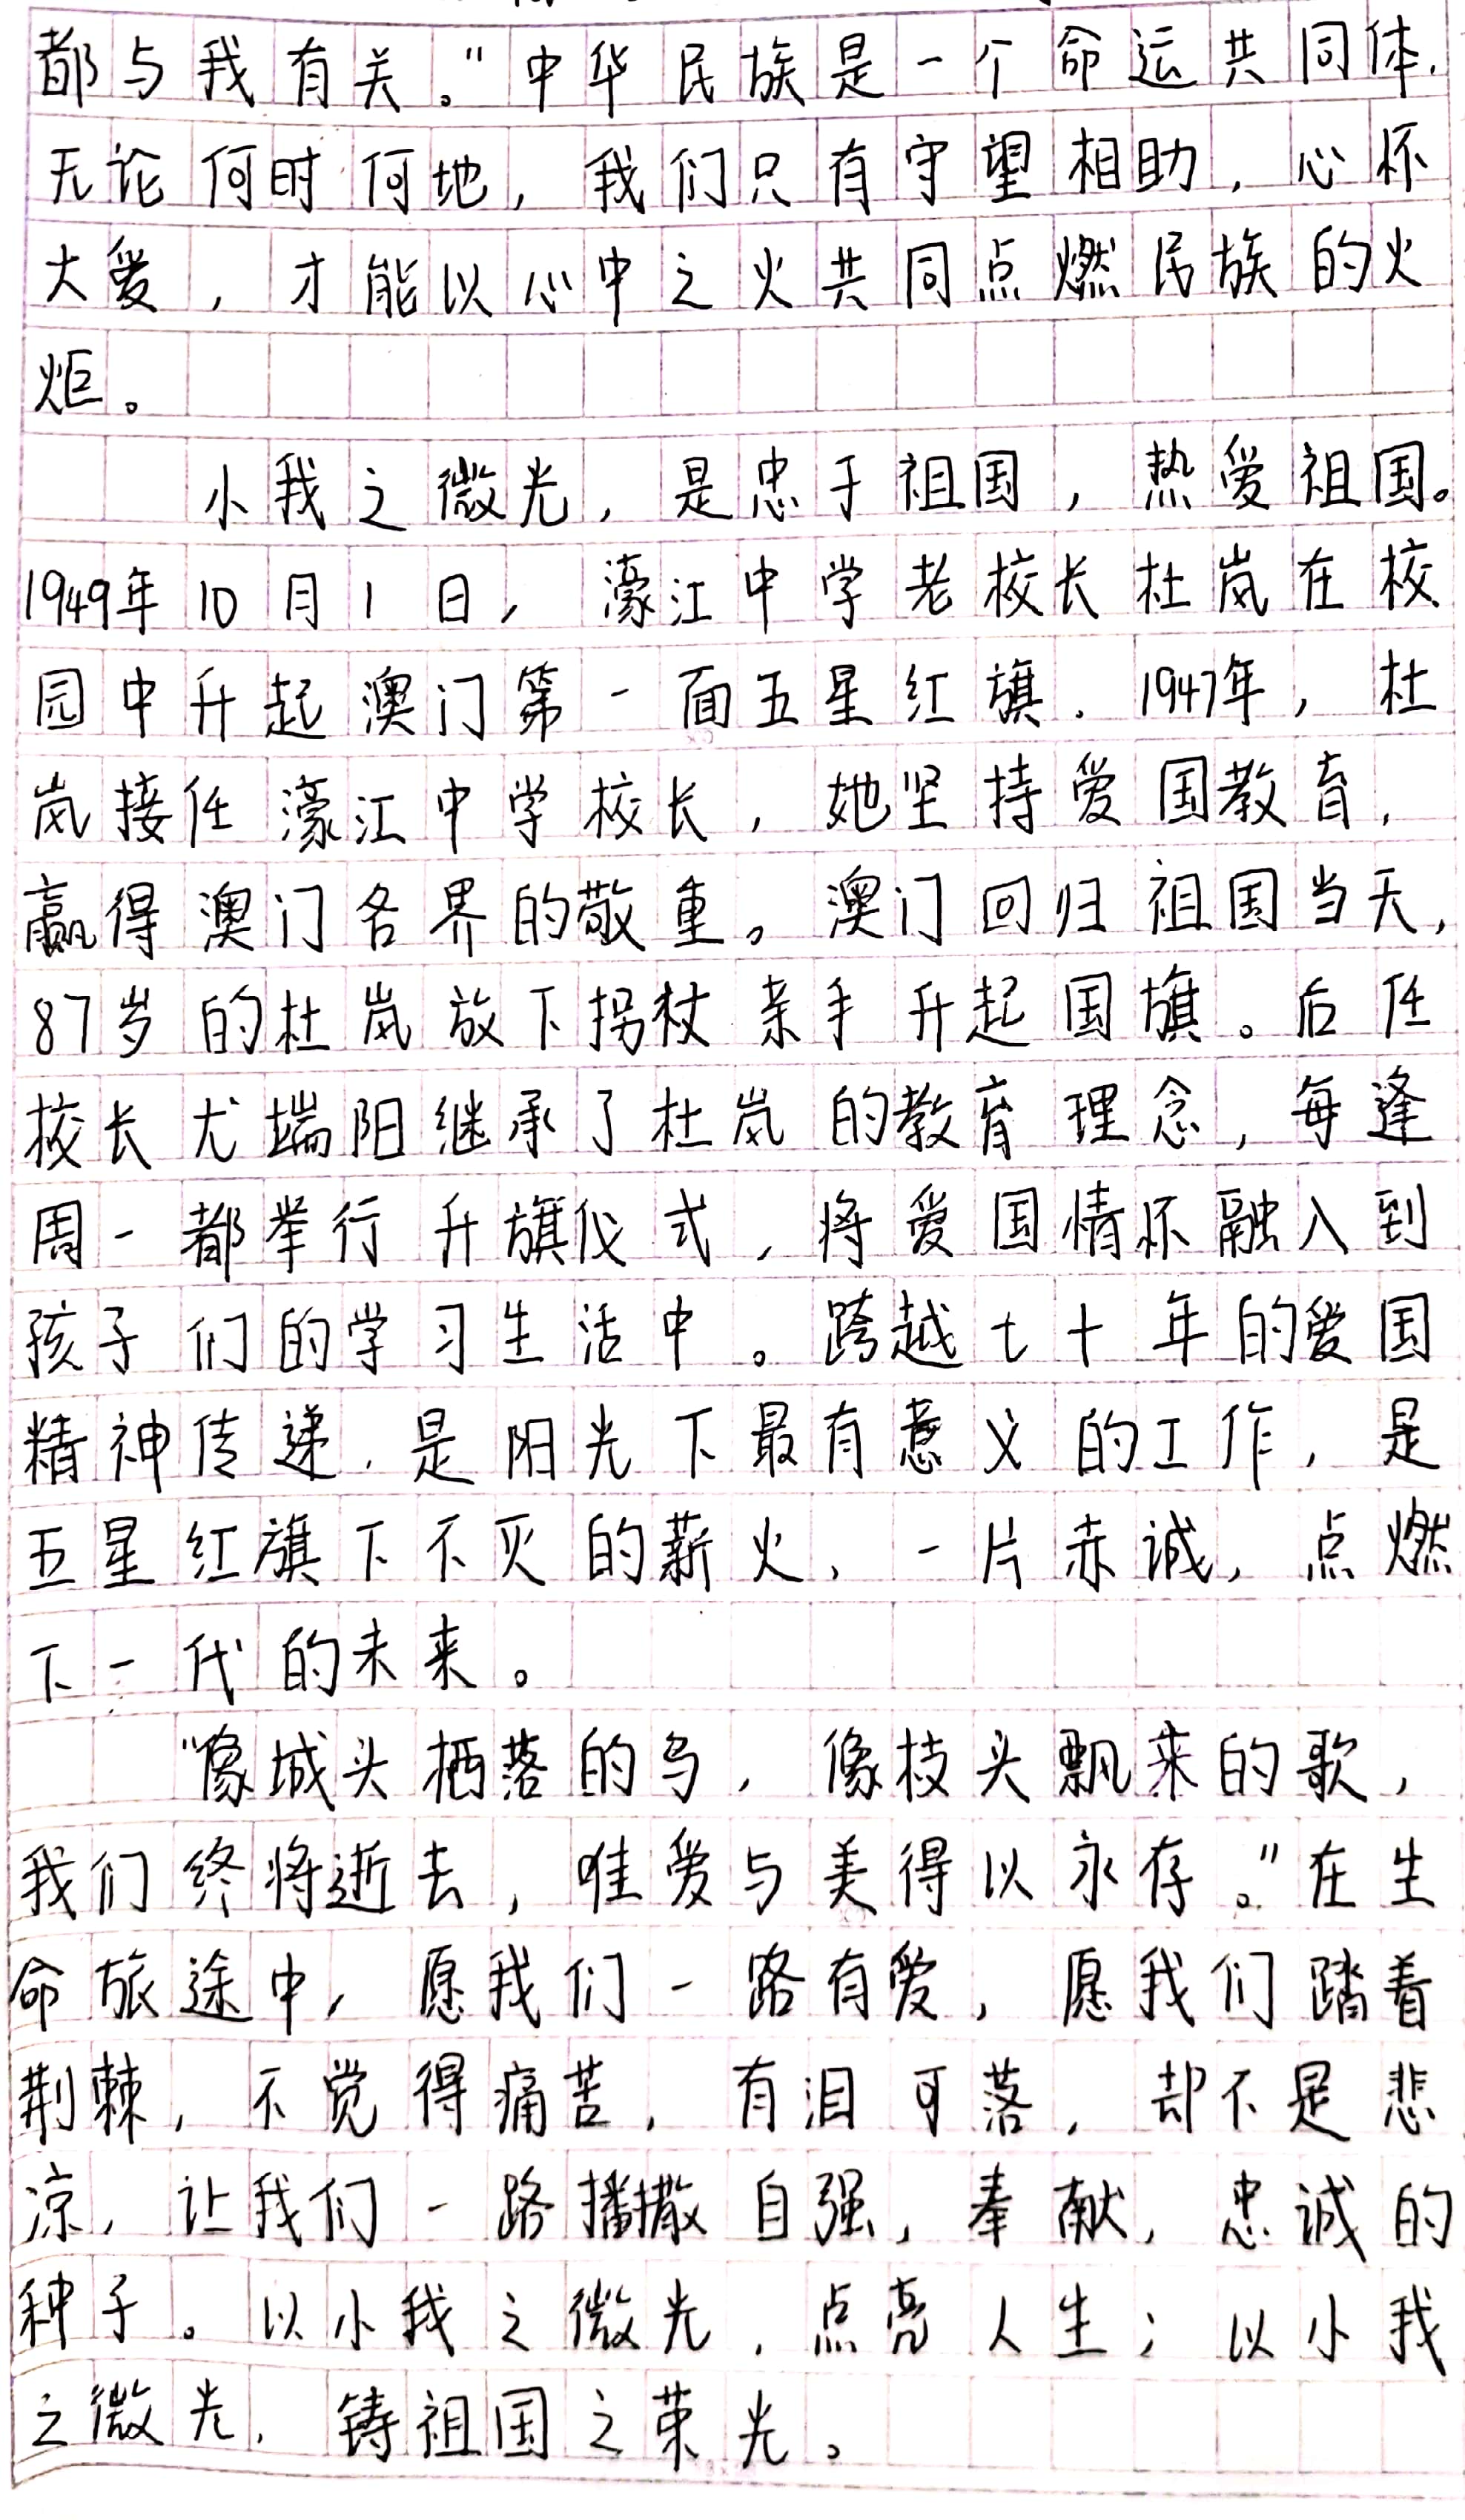 都与我有关。”中华民族是一个命运共同体，
无论何时何地，我们只有守望相助，心怀
大爱，才能以心中之火共同点燃民族的火
炬。
小我之微光，是忠于祖国，热爱祖国。
1949年10月1日，濠江中学老校长杜岚在校
园中升起澳门第一面五星红旗．1947年，杜
岚接任濠江中学校长，她坚持爱国教育，
赢得澳门各界的敬重。澳门回归祖国当天，
87岁的杜岚放下拐杖亲手升起国旗。后任
校长尤端阳继承了杜岚的教育理念，每逢
周一都举行升旗仪式，将爱国情怀融入到
孩子们的学习生活中。跨越七十年的爱国
精神传递，是阳光下最有意义的工作，是
五星红旗下不灭的薪火，一片赤诚，点燃
下一代的未来。
“像城头栖落的鸟，像枝头飘来的歌，
我们终将逝去，唯爱与美得以永存。”在生
命旅途中，愿我们一路有爱，愿我们踏着
荆棘，不觉得痛苦，有泪可落，却不是悲
凉，让我们一路播撒自强，奉献，忠诚的
种子。以小我之微光，点亮人生；以小我
之微光，铸祖国之荣光。